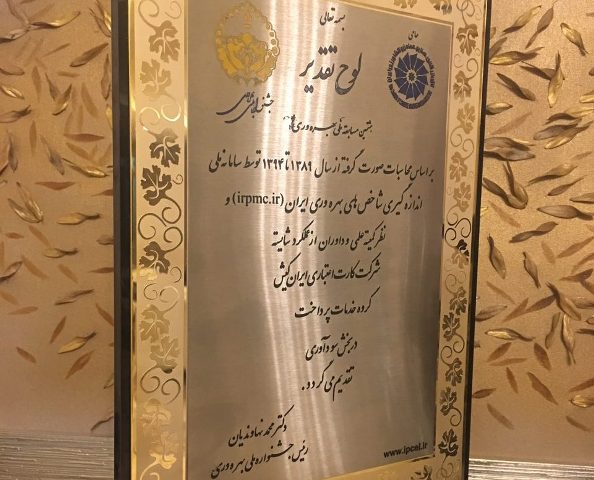 بسمه تعالی
حامی
لوح تقدیر
هشتمین مسابقه ملی بهره وری
بر اساس محاسبات صورت گرفته از سال ۱۳۸۹ تا ۱۳۹۴ توسط سامانه ملی
اندازه گیری شاخص های بهره وری ایران (irpmc.ir) و
نظر کمیته علمی و داوران از عملکرد شایسته
شرکت کارت اعتباری ایران کیش
گروه خدمات پرداخت
در بخش سودآوری
تقدیم می گردد.
دکتر محمد نهاوندیان
رئیس جشنواره ملی بهره وری
www.ipcei.ir